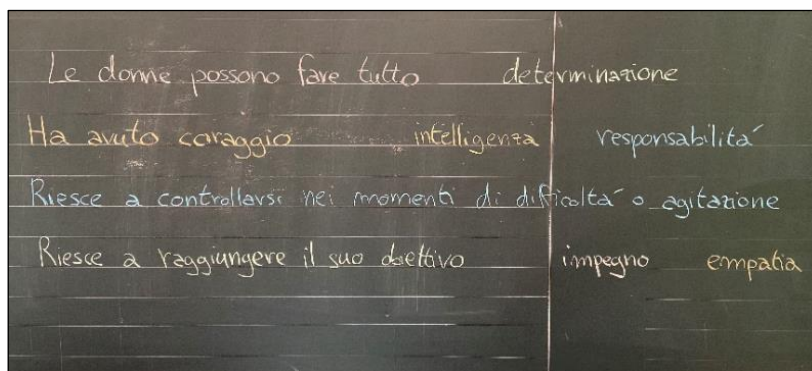 Le donne possono fare tutto determinazione
Ha avuto coraggio intelligenza responsabilità
Riesce a controllarsi nei momenti di difficoltà o agitazione
Riesce a raggiungere il suo obiettivo impegno empatia